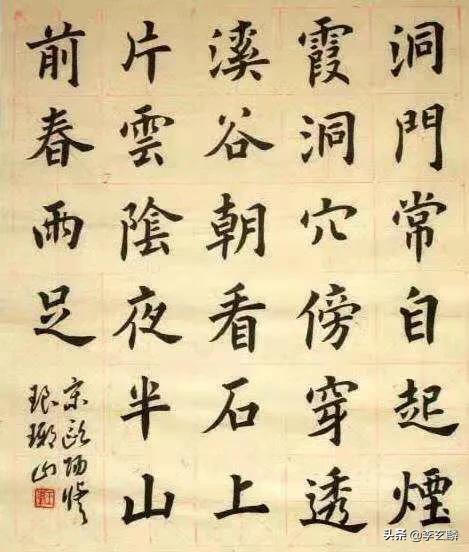 洞門常自起煙
霞洞穴傍穿透
溪谷朝看石上
片雲陰夜半山
前春雨足
宋歐陽修
琅琊山
头条 @李玄麟